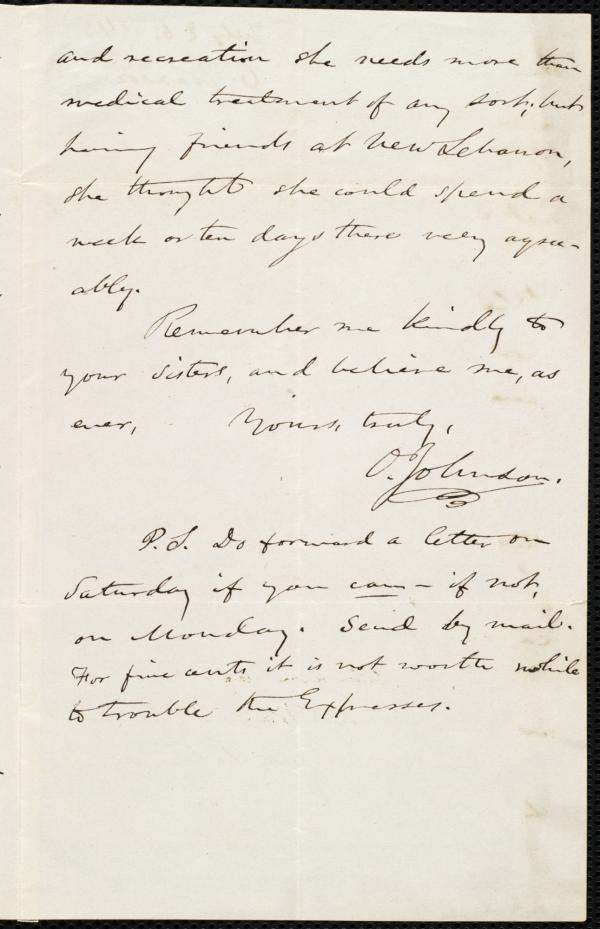 and recreation she needs more than
medical treatment of any sort; but
having friends at New Lebanon,
she thought she could spend a
week or ten days there very agree-
ably.
Remember me kindly to
your sisters, and believe me, as
ever, Yours, truly,
O. Johnson.
P.S. Do forward a letter on
Saturday if you can – if not,
on Monday. Send by mail.
For five cents it is not worth while
to trouble the Expresses.